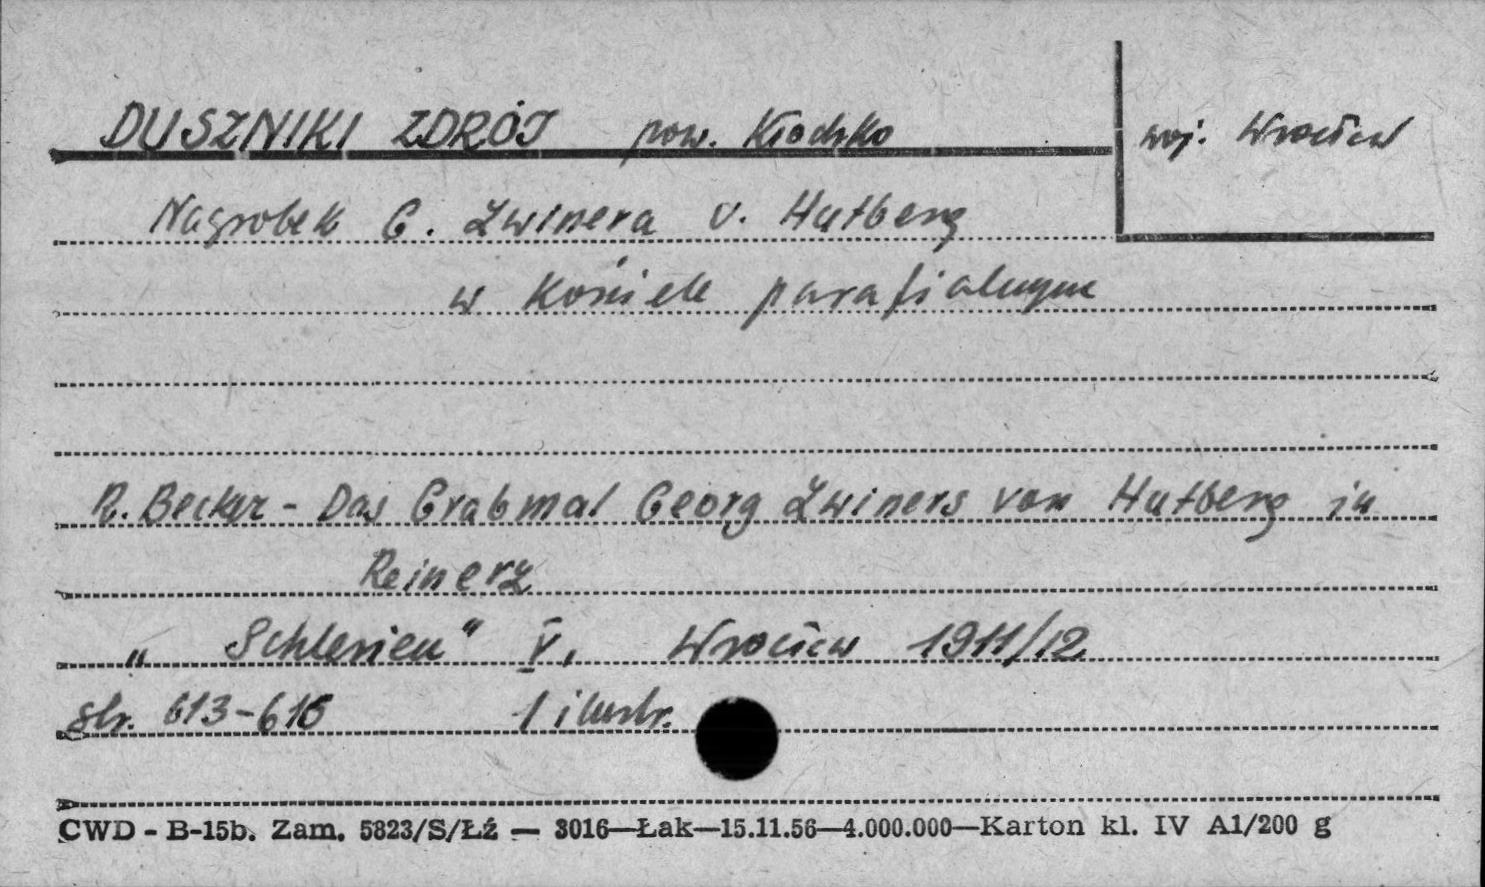 DUSZNIKI ZDRÓJ pow. Kłodzko
woj. Wrocław
Nagrobek G. Zwinera v. Hutberg
w kościele parafialnym
R. Becker - Das Grabmal Georg Zwiners von Hutberg in
Reinerz
„Schlesien" V, Wrocław 1911/12
str. 613-616 1 ilustr.
CWD - B-15b. Zam. 5823/S/Łź — 3016—Łak—15.11.56—4.000.000—Karton kl. IV A1/200 g